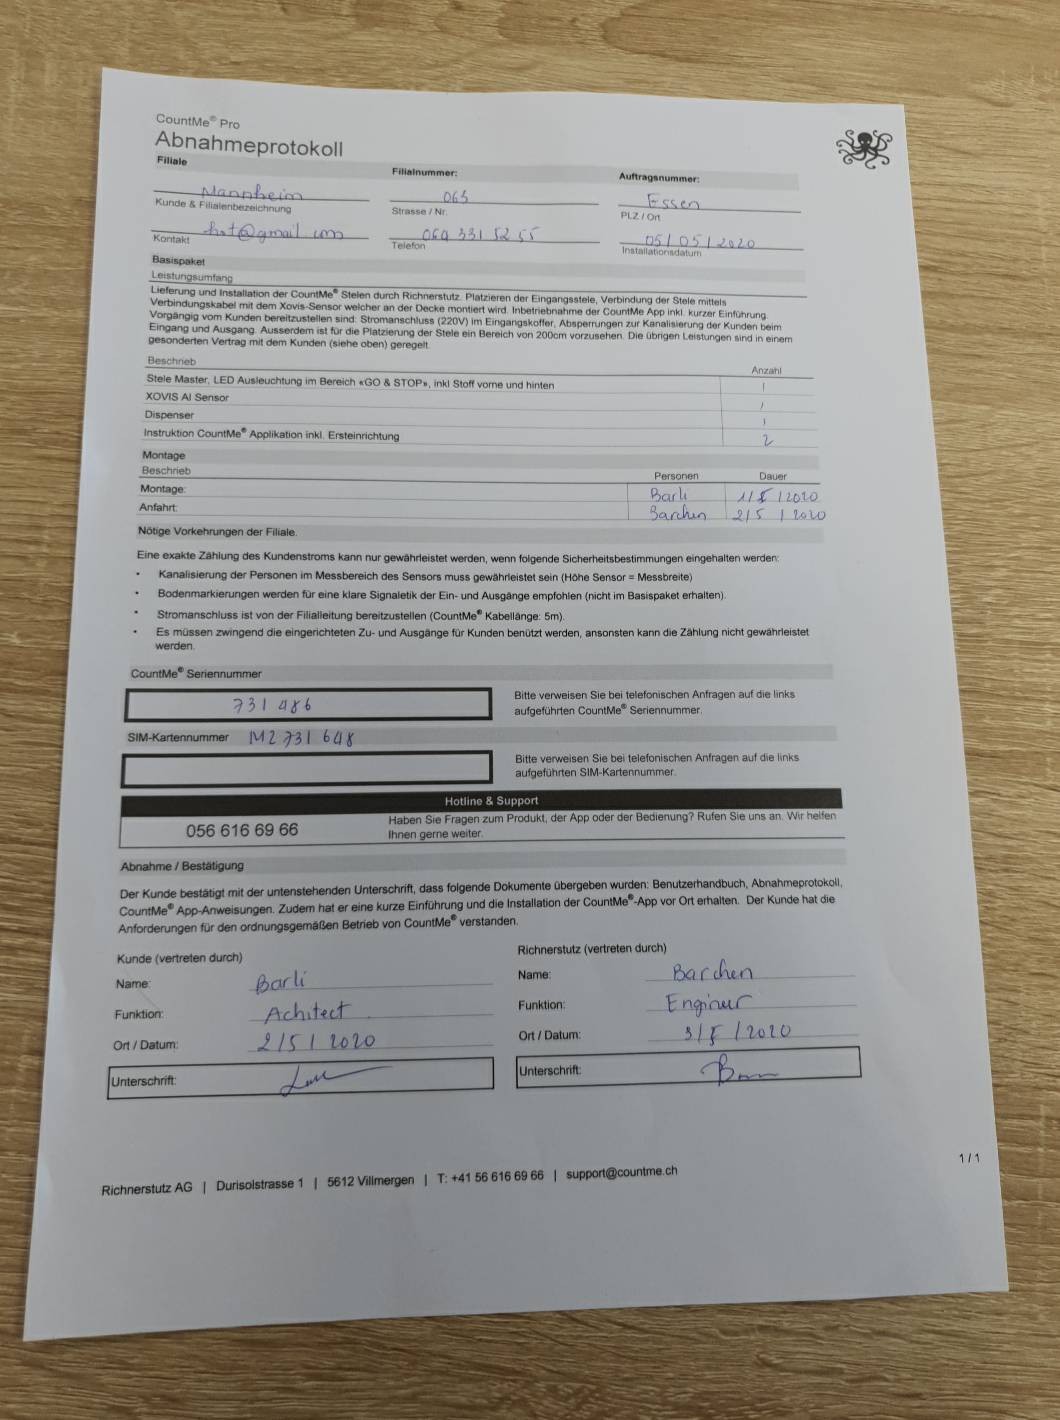 CountMe® Pro
Abnahmeprotokoll
Filiale Filialnummer: Auftragsnummer:
Mannheim 063 Essen
Kunde & Filialenbezeichnung Strasse / Nr. PLZ / Ort
@gmail com 069 331 52 55 05/05/2020
Kontakt Telefon Installationsdatum
Basispaket
Leistungsumfang
Lieferung und Installation der CountMe® Stelen durch Richnerstutz. Platzieren der Eingangsstele, Verbindung der Stele mittels
Verbindungskabel mit dem Xovis-Sensor welcher an der Decke montiert wird. Inbetriebnahme der CountMe App inkl. kurzer Einführung.
Vorgängig vom Kunden bereitzustellen sind: Stromanschluss (220V) im Eingangskoffer, Absperrungen zur Kanalisierung der Kunden beim
Eingang und Ausgang. Ausserdem ist für die Platzierung der Stele ein Bereich von 200cm vorzusehen. Die übrigen Leistungen sind in einem
gesonderten Vertrag mit dem Kunden (siehe oben) geregelt.
Beschrieb Anzahl
Stele Master, LED Ausleuchtung im Bereich «GO & STOP», inkl Stoff vorne und hinten 1
XOVIS AI Sensor 1
Dispenser 1
Instruktion CountMe® Applikation inkl. Ersteinrichtung 2
Montage
Beschrieb Personen Dauer
Montage: Barli 1/5/2020
Anfahrt: Barchen 2/5/2020
Nötige Vorkehrungen der Filiale.
Eine exakte Zählung des Kundenstroms kann nur gewährleistet werden, wenn folgende Sicherheitsbestimmungen eingehalten werden:
• Kanalisierung der Personen im Messbereich des Sensors muss gewährleistet sein (Höhe Sensor = Messbreite)
• Bodenmarkierungen werden für eine klare Signaletik der Ein- und Ausgänge empfohlen (nicht im Basispaket erhalten).
• Stromanschluss ist von der Filialleitung bereitzustellen (CountMe® Kabellänge: 5m).
• Es müssen zwingend die eingerichteten Zu- und Ausgänge für Kunden benützt werden, ansonsten kann die Zählung nicht gewährleistet
werden.
CountMe® Seriennummer
731 486 Bitte verweisen Sie bei telefonischen Anfragen auf die links
aufgeführten CountMe® Seriennummer.
SIM-Kartennummer M2 731 648
Bitte verweisen Sie bei telefonischen Anfragen auf die links
aufgeführten SIM-Kartennummer.
Hotline & Support
056 616 69 66 Haben Sie Fragen zum Produkt, der App oder der Bedienung? Rufen Sie uns an. Wir helfen
Ihnen gerne weiter.
Abnahme / Bestätigung
Der Kunde bestätigt mit der untenstehenden Unterschrift, dass folgende Dokumente übergeben wurden: Benutzerhandbuch, Abnahmeprotokoll,
CountMe® App-Anweisungen. Zudem hat er eine kurze Einführung und die Installation der CountMe®-App vor Ort erhalten. Der Kunde hat die
Anforderungen für den ordnungsgemäßen Betrieb von CountMe® verstanden.
Kunde (vertreten durch) Richnerstutz (vertreten durch)
Name: Barli Name: Barchen
Funktion: Achitect Funktion: Enginer
Ort / Datum: 2/5/2020 Ort / Datum: 3/5/2020
Unterschrift: Unterschrift:
1 / 1
Richnerstutz AG | Durisolstrasse 1 | 5612 Villmergen | T: +41 56 616 69 66 | support@countme.ch